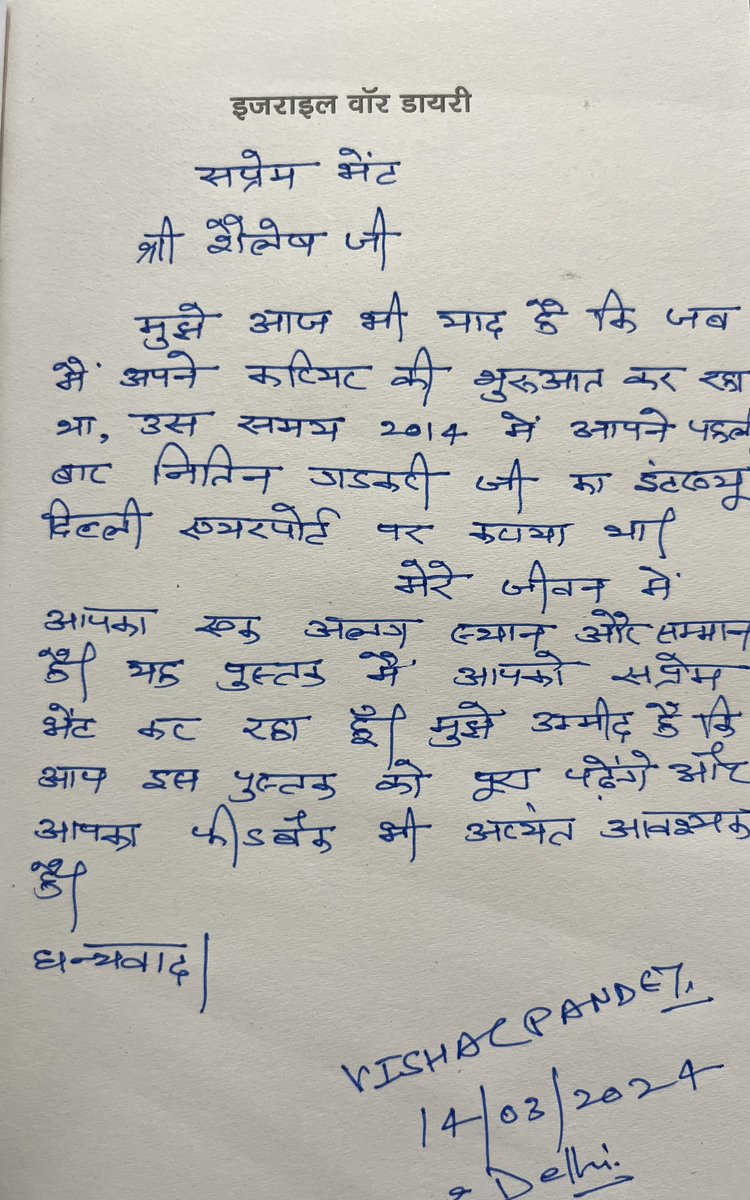 इजराइल वॉर डायरी
सप्रेम भेंट
श्री शैलेष जी
मुझे आज भी याद है कि जब
मैं अपने करियर की शुरूआत कर रहा
था, उस समय 2014 में आपने पहली
बार नितिन गडकरी जी का इंटरव्यू
दिल्ली एयरपोर्ट पर कराया था।
मेरे जीवन में
आपका एक अलग स्थान और सम्मान
है। यह पुस्तक मैं आपको सप्रेम
भेंट कर रहा हूँ। मुझे उम्मीद है कि
आप इस पुस्तक को पूरा पढ़ेंगे और
आपका फीडबैक भी अत्यंत आवश्यक
है।
धन्यवाद।
VISHAL PANDEY.
14/03/2024
Delhi.